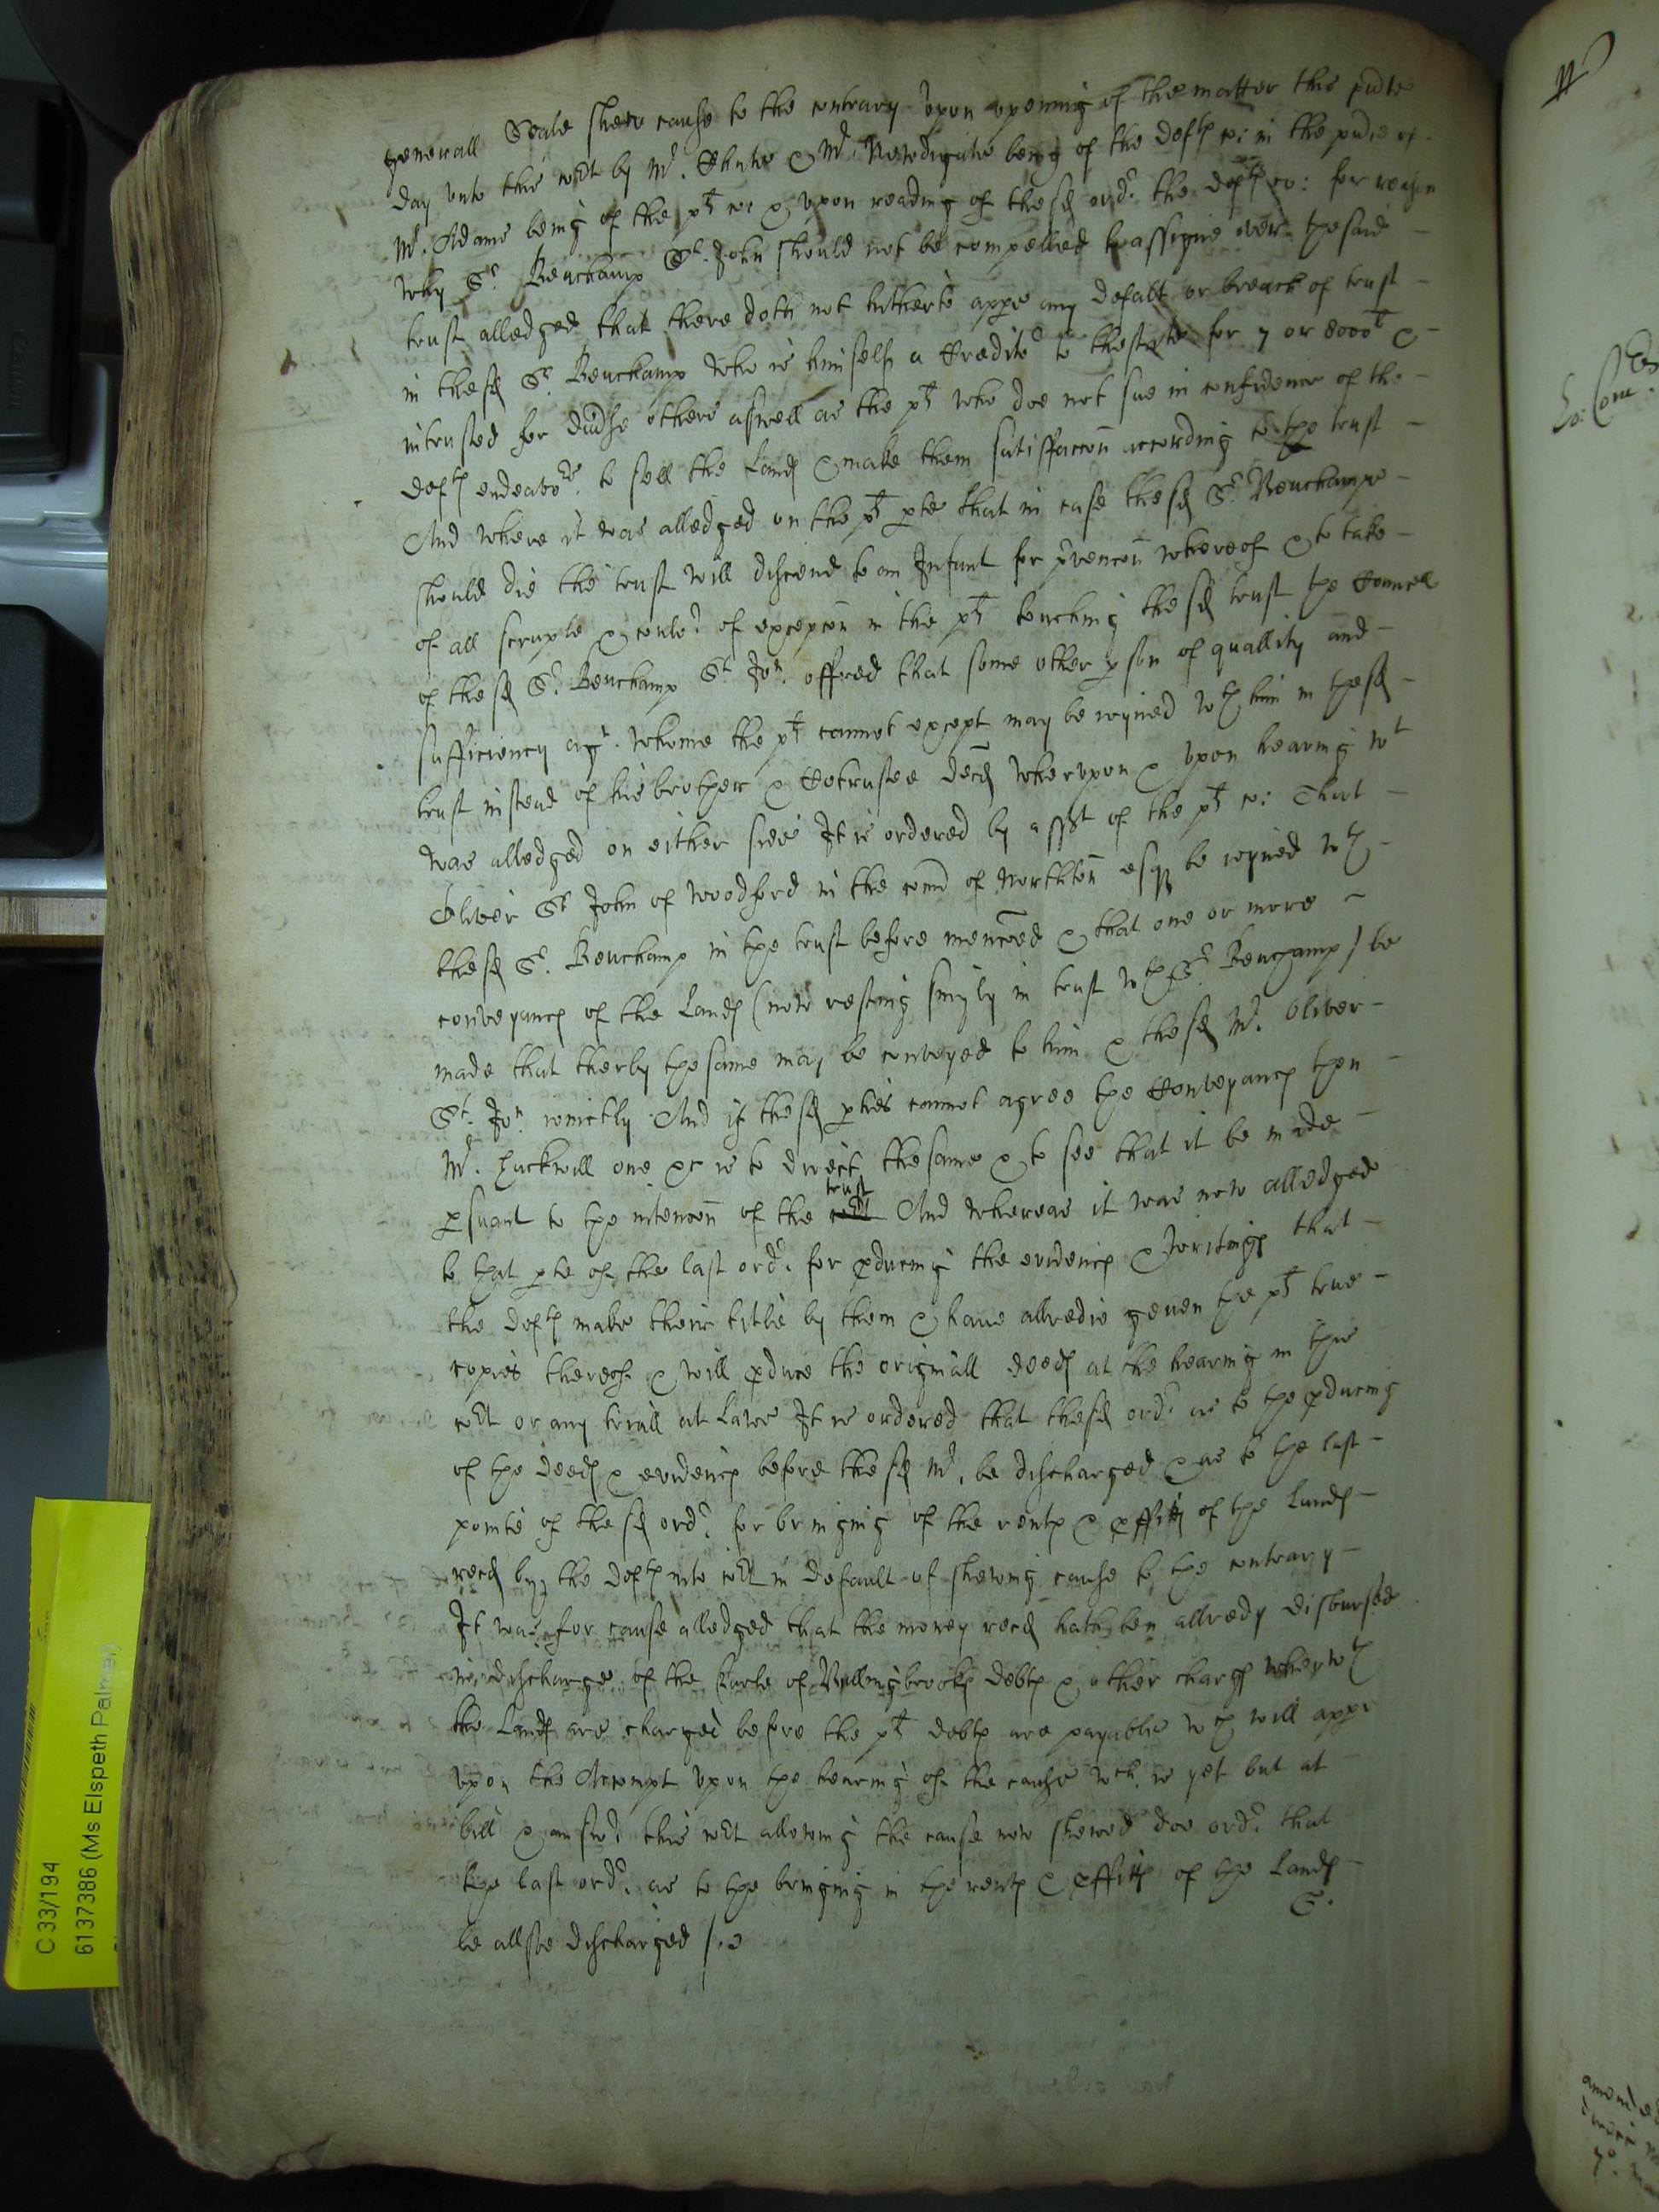 generall Seale shew cause to the contrary Upon opening of the matter this p̃nte
day unto this co:rt by Mr. Chute & Mr. Newdigate being of the defts co: in the p̃nce of
Mr. Adams being of the plts co: & upon reading of the sd ordr. the defts co: for reason
why Sr. Beuchamp St. John should not be compelled to assigne over the said
trust alledged that there doth not hitherto appe any defalt or breach of trust
in the sd Sr. Beuchamp who is himself a Creditor to the state for 7 or 8000l &
intrusted for divse others aswell as the plt who doe not sue in confidence of the
defts endeavors. to sell the Lands & make them satisfaccon according to the trust
And where it was alledged on the plts pte that in case the sd Sr. Beuchampe
should die the trust will discend to an Infant for p̃vencon whereof & to take
of all scruple & coulor. of excepcon in the plt touching the sd trust the Councell
of the sd Sr. Beuchamp St. Jon. offred that some other pson of quallity and
sufficiency agt. whome the plt cannot except may be ioyned wth him in the sd
trust instead of his brother & Cotrustee decd wherupon & upon hearing wt
was alledged on either side It is ordered by assent of the plts co: That
Oliver St John of Woodford in the com of Northton esqr be ioyned wth
the sd Sr. Beuchamp in the trust before menc̃oed & that one or more
conveyances of the Lands (now resting singly in trust wth Sr. Beuchamp) be
made that therby the same may be conveyed to him & the sd Mr. Oliver
St. Jon. ioinctly And if the sd pties cannot agree the Conveyances then
Mr. Hackwill one &c is to direct the same & to see that it be made
psuant to the intencon of the co:rt trust And whereas it was now alledged
to that pte of the last ordr. for pducing the evidences & writings that
the defts make their title by them & have allredie geven the plt true
copies thereof & will pduce the originall deeds at the hearing in this
co:rt or any triall at Lawe It is ordered that the sd ordr. as to the pducing
of the deeds & evidences before the sd Mr. be discharged & as to the last
pointe of the sd ordr. for bringing of the rents & pffitts of the Lands
recd by the defts into co:rt in default of shewing cause to the contrary
It was for cause alledged that the money recd hath ben allredy disbursed
in discharge of the Earle of Bullingbrooks debts & other charges wherwth
the Lands are charged before the plts debts are payable wch will appe
upon the Accompt upon the hearing of the cause wch. is yet but at
bill & answr. this co:rt allowing the cause now shewed doe ordr. that
the last ordr. as to the bringing in the rents & pffitts of the Lands
be allsoe discharged /.
C 33/194
61137386 (Ms Elspeth Palmer)
Canon